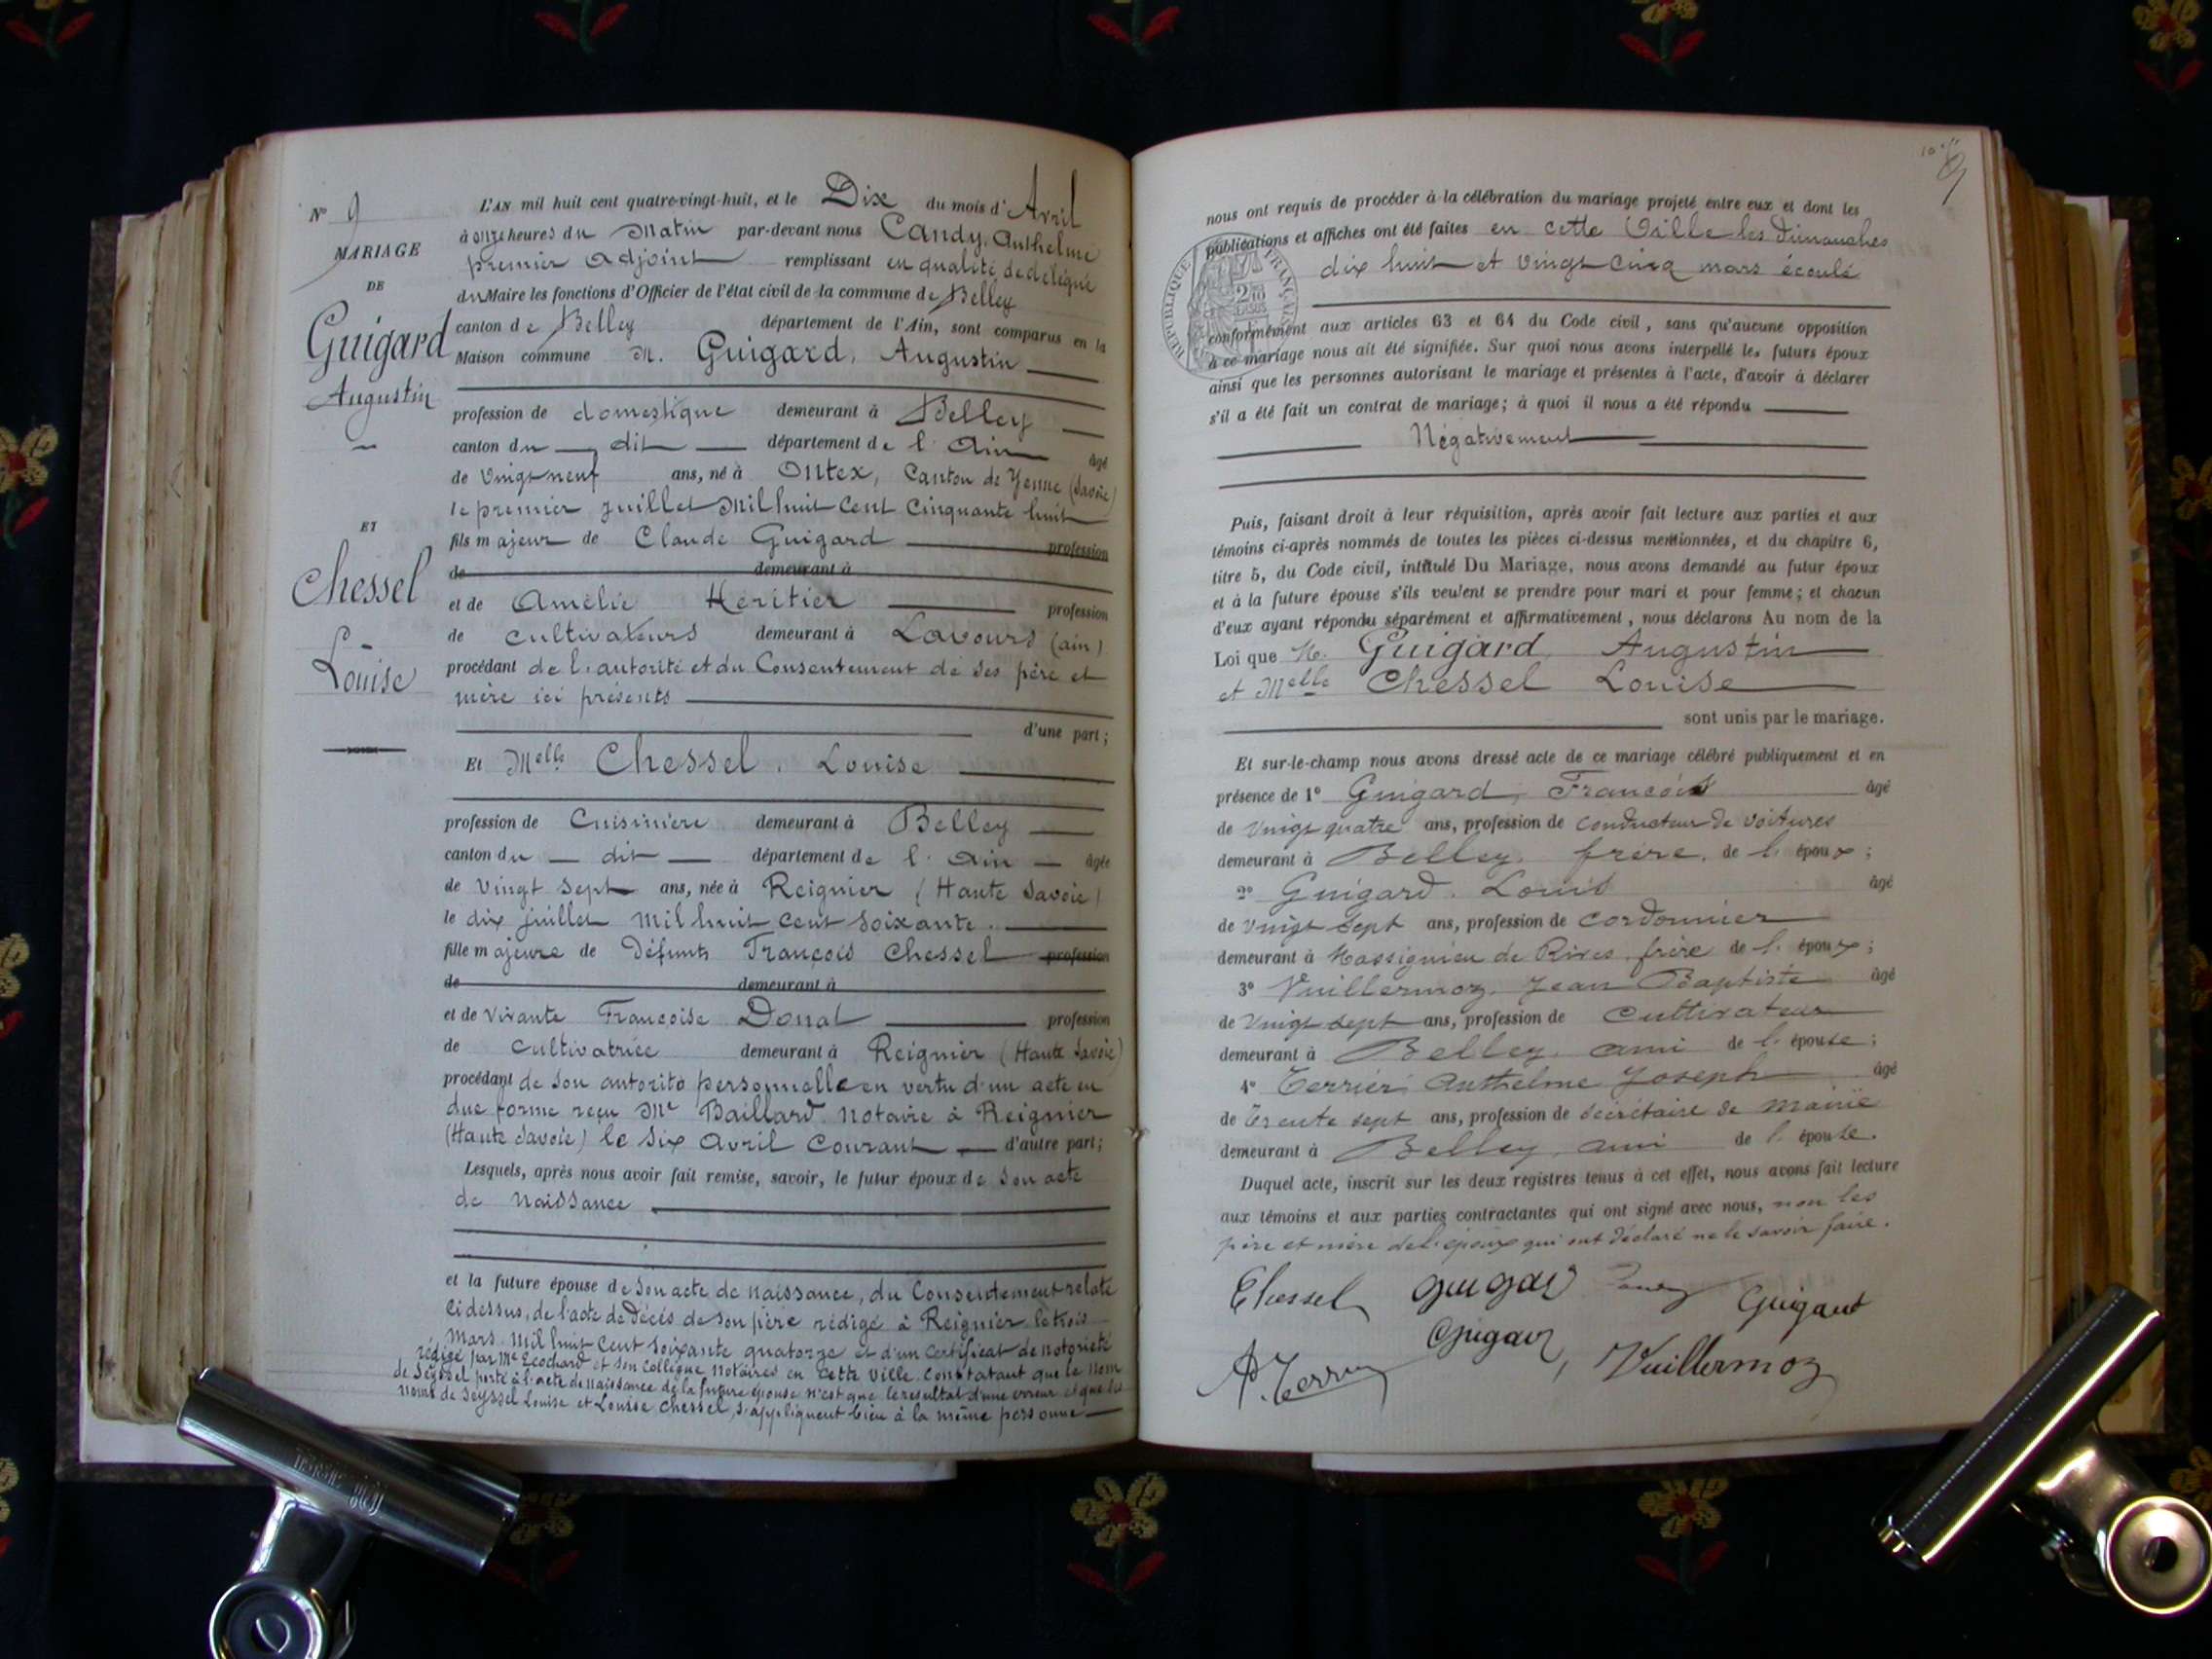 N° 9
MARIAGE
DE
Guigard
Augustin
ET
Chessel
Louise
L'AN mil huit cent quatre-vingt-huit, et le Dix du mois d'Avril
à onze heures du Matin par-devant nous Candy, Anthelme
premier adjoint remplissant en qualité de délégué
du Maire les fonctions d'Officier de l'état civil de la commune de Belley
canton de Belley département de l'Ain, sont comparus en la
Maison commune M. Guigard, Augustin
profession de domestique demeurant à Belley
canton du dit département de l'Ain âgé
de Vingt neuf ans, né à Ontex, Canton de Yenne (Savoie)
le premier juillet Mil huit Cent Cinquante huit
fils majeur de Claude Guigard profession
de demeurant à
et de Amélie Héritier profession
de cultivateurs demeurant à Lavours (ain)
procédant de l'autorité et du Consentement de ses père et
mère ici présents
d'une part;
Et Melle Chessel, Louise
profession de Cuisinière demeurant à Belley
canton du dit département de l'Ain âgée
de Vingt sept ans, née à Reignier (Haute Savoie)
le dix juillet mil huit cent soixante.
fille majeure de Défunt François Chessel profession
de demeurant à
et de Vivante Françoise Donat profession
de cultivatrice demeurant à Reignier (Haute Savoie)
procédant de son autorité personnelle en vertu d'un acte en
due forme reçu Me Baillard notaire à Reignier
(Haute Savoie) le six avril courant d'autre part;
Lesquels, après nous avoir fait remise, savoir, le futur époux de son acte
de naissance
et la future épouse de son acte de naissance, du Consentement relaté
ci dessus, de l'acte de décès de son père rédigé à Reignier le trois
Mars mil huit cent soixante quatorze et d'un certificat de notoriété
rédigé par Me Ecochard et son collègue notaires en cette ville constatant que le nom
de Seyssel porté à l'acte de naissance de la future épouse n'est que le résultat d'une erreur et que les
noms de Seyssel Louise et Louise Chessel, s'appliquent bien à la même personne
9
nous ont requis de procéder à la célébration du mariage projeté entre eux et dont les
publications et affiches ont été faites en cette Ville les dimanches
dix huit et vingt cinq mars écoulé
RÉPUBLIQUE FRANÇAISE
conformément aux articles 63 et 64 du Code civil, sans qu'aucune opposition
à ce mariage nous ait été signifiée. Sur quoi nous avons interpellé les futurs époux
ainsi que les personnes autorisant le mariage et présentes à l'acte, d'avoir à déclarer
s'il a été fait un contrat de mariage; à quoi il nous a été répondu
Négativement
Puis, faisant droit à leur réquisition, après avoir fait lecture aux parties et aux
témoins ci-après nommés de toutes les pièces ci-dessus mentionnées, et du chapitre 6,
titre 5, du Code civil, intitulé Du Mariage, nous avons demandé au futur époux
et à la future épouse s'ils veulent se prendre pour mari et pour femme; et chacun
d'eux ayant répondu séparément et affirmativement, nous déclarons Au nom de la
Loi que M. Guigard Augustin
et Melle Chessel Louise
sont unis par le mariage.
Et sur-le-champ nous avons dressé acte de ce mariage célébré publiquement et en
présence de 1° Guigard, François âgé
de vingt quatre ans, profession de conducteur de voitures
demeurant à Belley, frère, de l'époux;
2° Guigard, Louis âgé
de vingt sept ans, profession de cordonnier
demeurant à Massignieu de Rives, frère de l'époux;
3° Vuillermoz, Jean Baptiste âgé
de vingt sept ans, profession de Cultivateur
demeurant à Belley, ami de l'épouse;
4° Terrier, Anthelme Joseph âgé
de trente sept ans, profession de secrétaire de mairie
demeurant à Belley, ami de l'épouse.
Duquel acte, inscrit sur les deux registres tenus à cet effet, nous avons fait lecture
aux témoins et aux parties contractantes qui ont signé avec nous, non les
père et mère de l'époux qui ont déclaré ne le savoir faire.
Chessel Guigar Candy Guigard
A. Terrier Guigar Vuillermoz